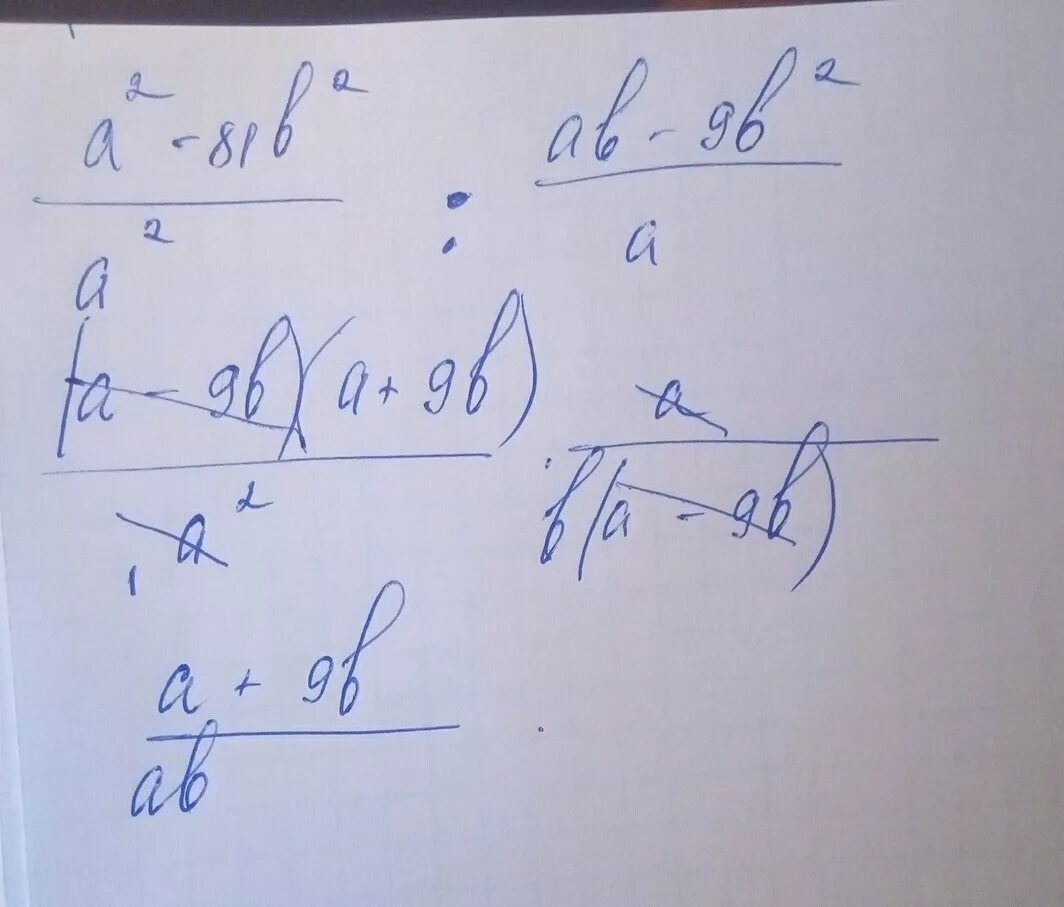 a² - 81b² / a² : ab - 9b² / a
(a - 9b)(a + 9b) / a² · a / b(a - 9b)
a + 9b / ab